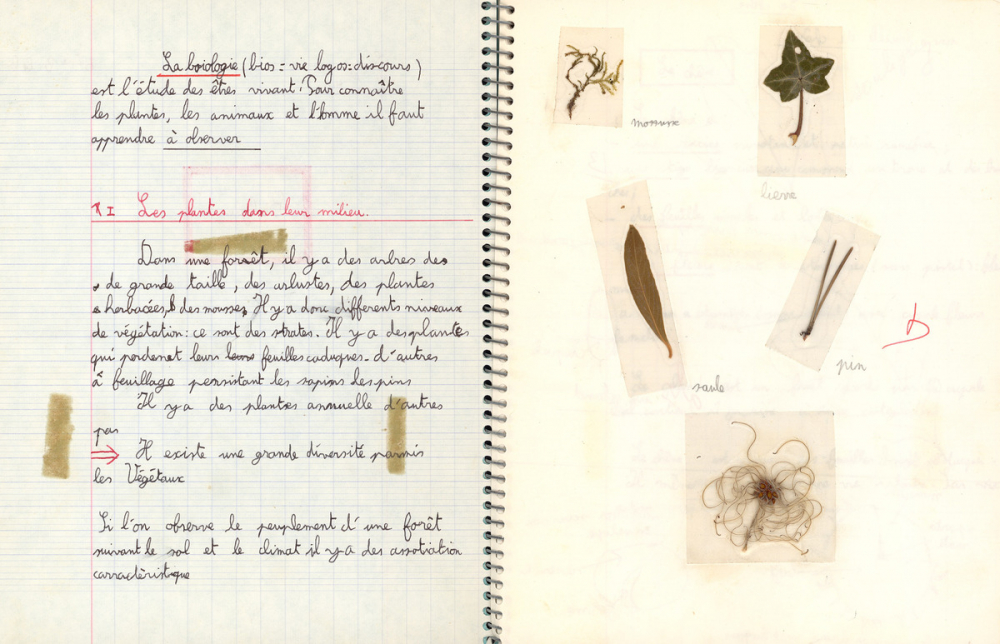 La boiologie (bios = vie logos = discours)
est l'étude des êtres vivant. Pour connaître
les plantes, les animaux et l'homme il faut
apprendre à observer
I Les plantes dans leur milieu.
Dans une forêt, il y a des arbres de
de grande taille, des arbustes, des plantes
herbacées, des mousses, Il y a donc différents niveaux
de végétation: ce sont des strates. Il y a des plantes
qui perdenet leurs feuilles caduques. d'autres
à feuillage persistant les sapins les pins
Il y a des plantes annuelle d'autres
pas
⇒ Il existe une grande diversité parmis
les Végétaux
Si l'on observe le peuplement d'une forêt
suivant le sol et le climat il y a des assotiation
carractèristique
mousse
lierre
saule
pin